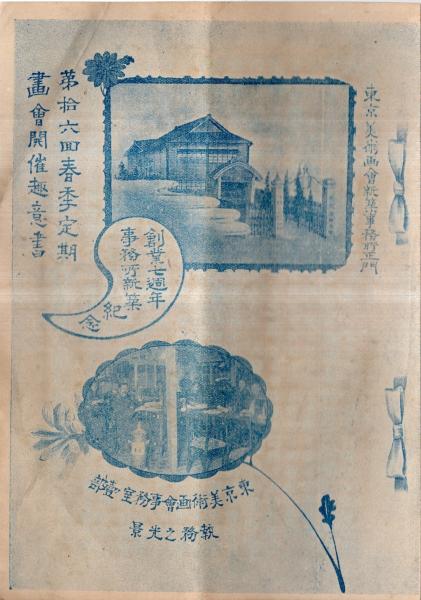 東京美術画會新築事務所正門
第拾六回春季定期
畫會開催趣意書
創業七週年
事務所新築
紀念
東京美術画會事務室一部
執務之光景